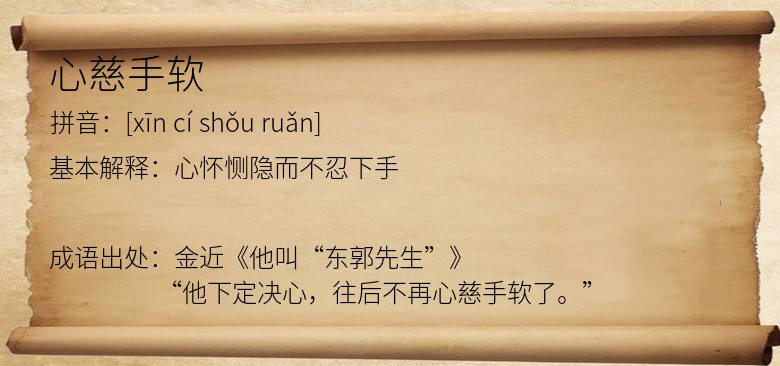 心慈手软
拼音：[xīn cí shǒu ruǎn]
基本解释：心怀恻隐而不忍下手
成语出处：金近《他叫“东郭先生”》
“他下定决心，往后不再心慈手软了。”